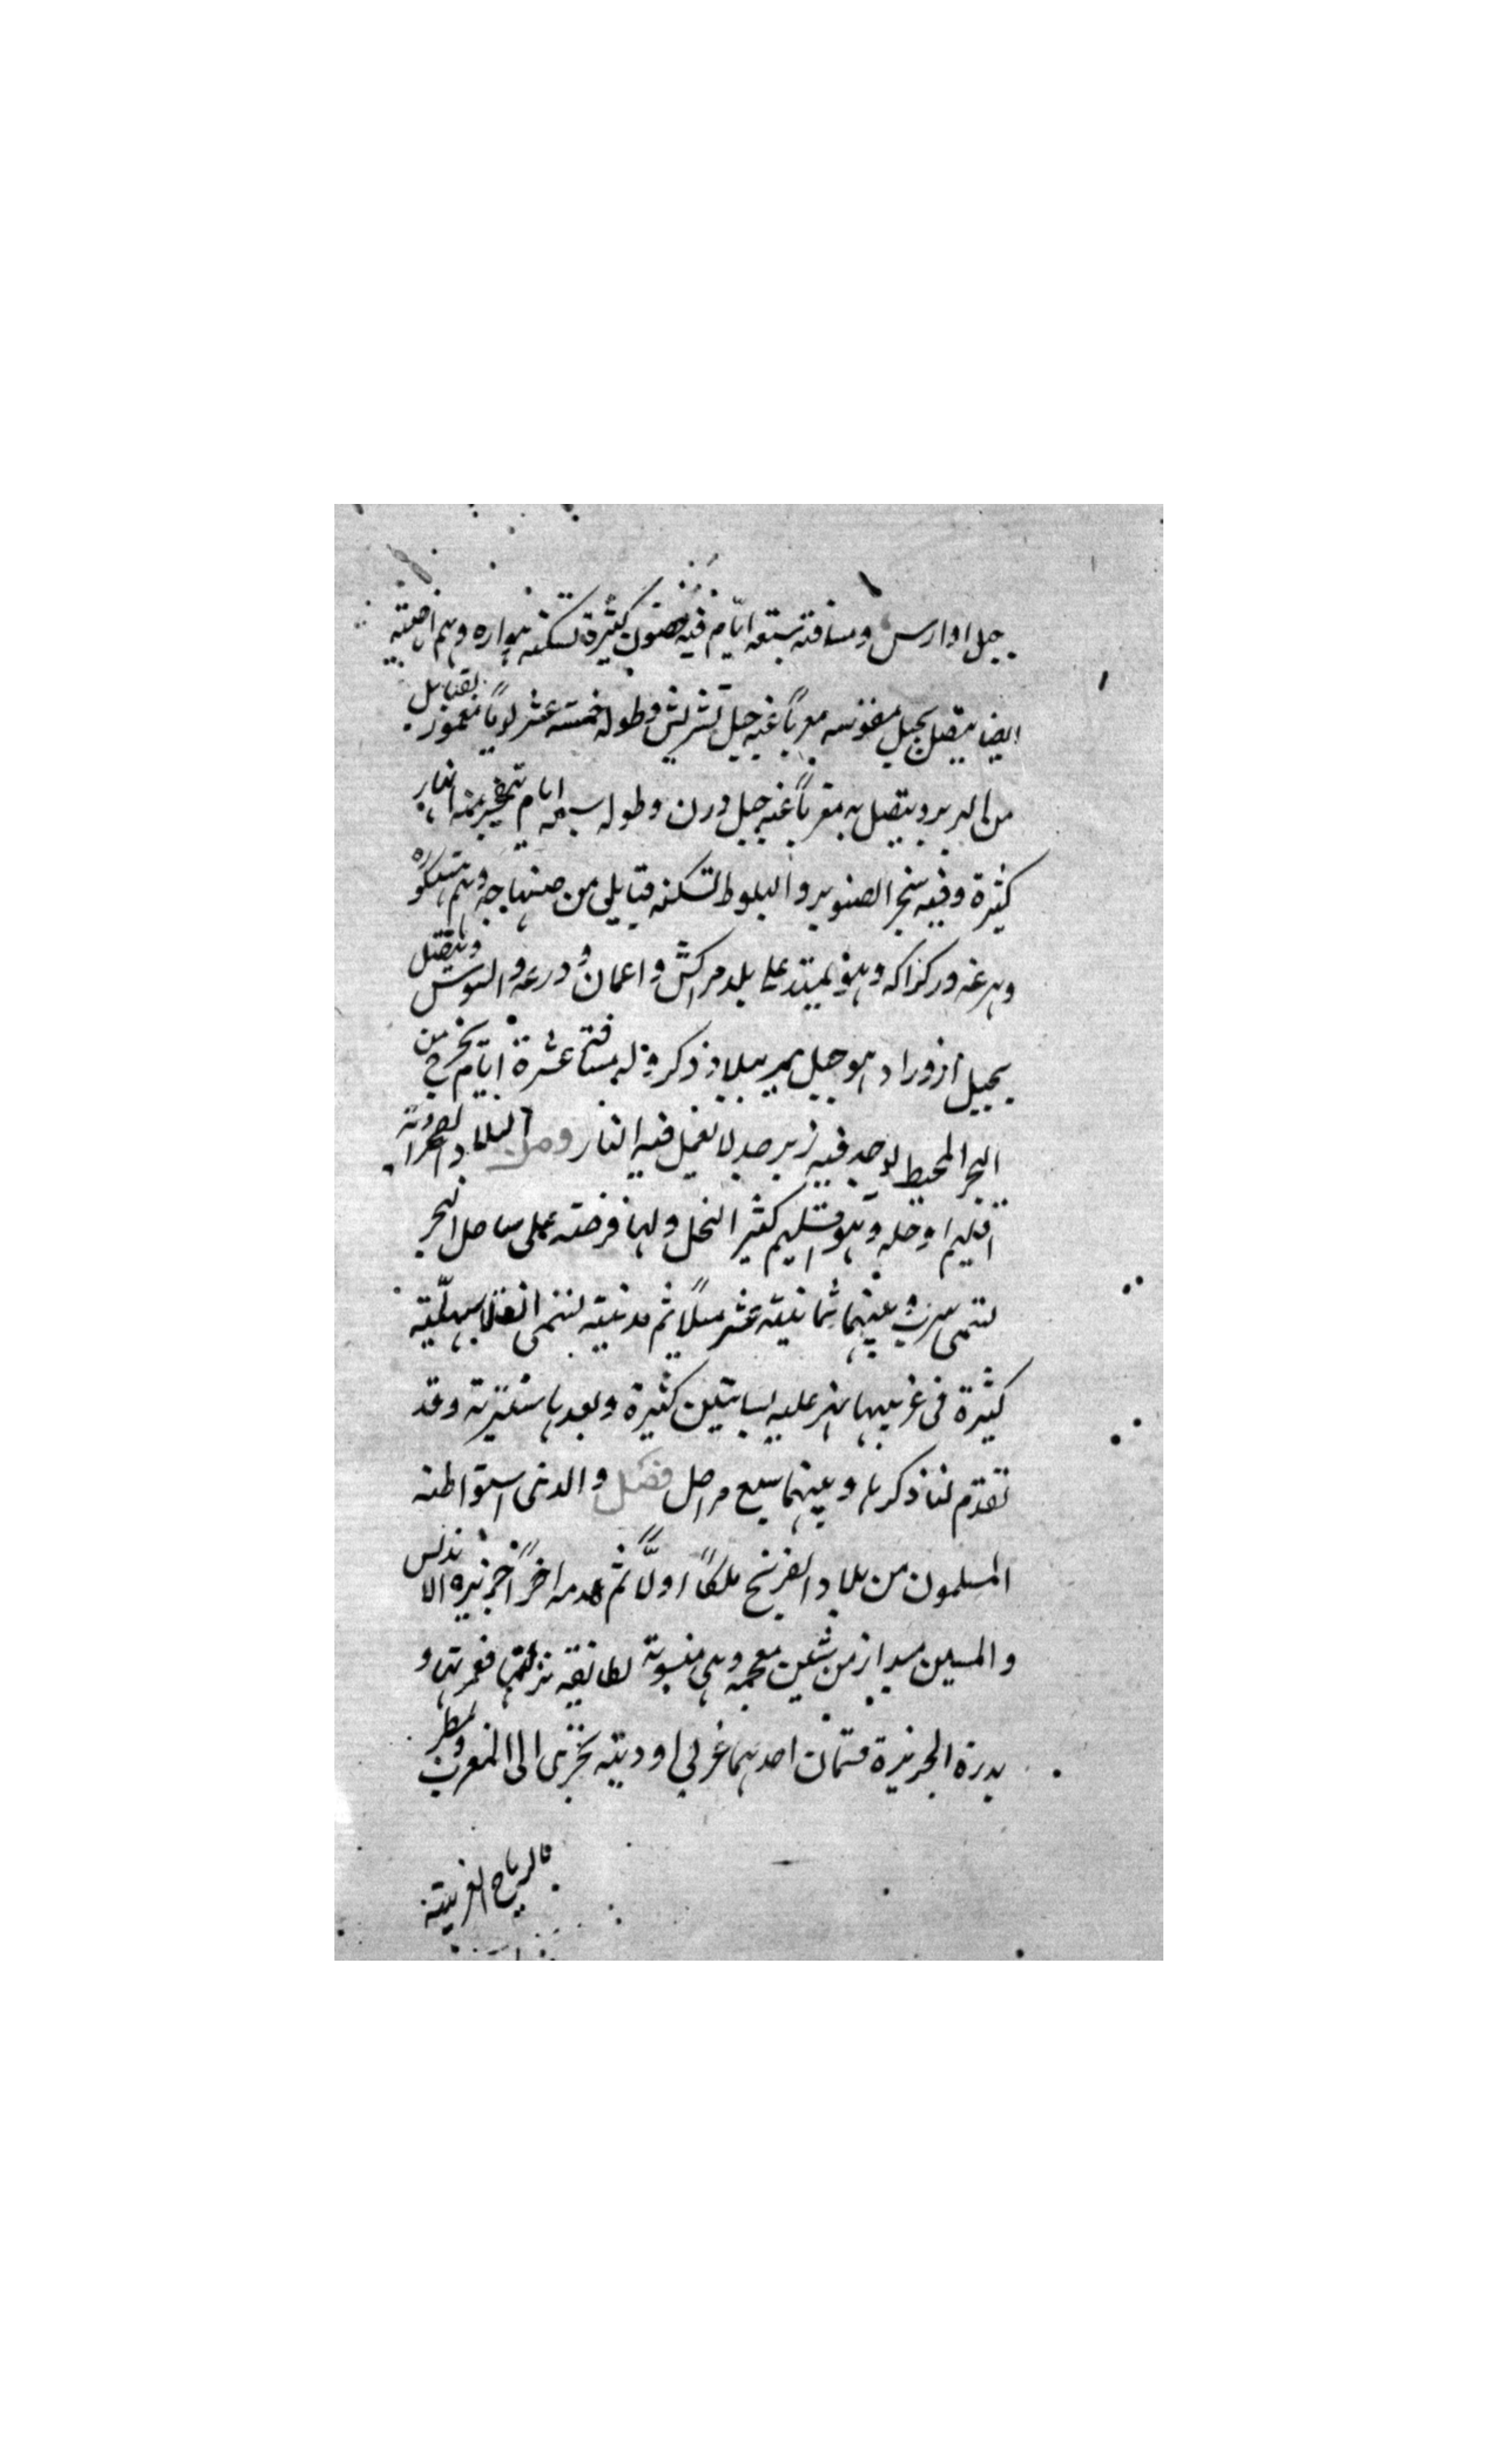 جبل اوارس ومسافته سبعة ايّام فيه حصون كثيرة تسكنه هواره وهم اباضيه
ايضا يتصل بجبل مغربًا عنه جبل وطوله خمسة عشر يومًا معمور بقبايل
من البربر ويتصل به مغربًا عنه جبل درن وطوله سبعة ايام تتفجر منه انهار
كثيرة وفيه شجر الصنوبر والبلوط تسكنه قبايل من صنهاجه وهم هسكوره
وهرغه وركراكه وهو يمتد على بلد مراكش واغمات ودرعه والسوس ويتصل
بجبل ازور وهو جبل بربر ذكر وله مسافة عشرة ايّام يخرج من
البحر المحيط يوجد فيه زبرجد لا تعمل فيه النار ومن البلاد الصحراوية
اقليم اوجله وهو اقليم كثير النخل ولها فرضة على ساحل البحر
تسمى سرت وبينهما ثمانية عشر ميلًا ثم مدينة تسمى
كثيرة فى غربيها نهر عليه بساتين كثيرة وبعدها شنترية وقد
تقدّم لنا ذكرها وبينهما سبع مراحل فصل والذى استواطنه
المسلمون من بلاد الفرنج ملكًا اولًا ثم اخرًا جزيرة الاندلس
والسين من شين معجمه وهى منسوبة لطائفة نزلتها فعمرتها و
هذه الجزيرة قسمان احدهما غربي اوديته تجرى الى المغرب ومطر
بالرياح الغربية